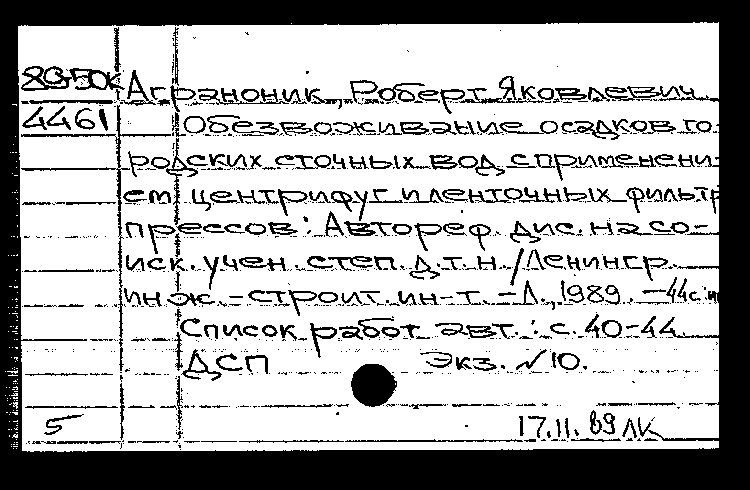 89-50к Аграноник, Роберт Яковлевич.
4461 Обезвоживание осадков го-
родских сточных вод с применени-
ем центрифуг и ленточных фильтр
прессов: Автореф. дис. на со-
иск. учен. степ. д.т.н./Ленингр.
инж.-строит. ин-т. - Л., 1989. - 44с
Список работ авт.: с. 40-44.
ДСП Экз. №10.
5 17.11.89 ЛК